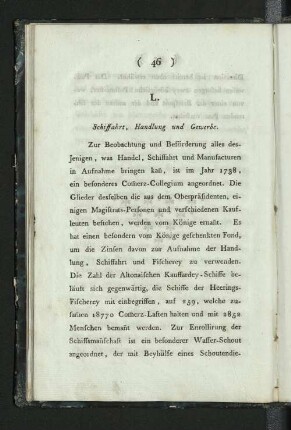 ( 46 )
L.
Schiffahrt, Handlung und Gewerbe.
Zur Beobachtung und Beförderung alles des-
jenigen, was Handel, Schiffahrt und Manufacturen
in Aufnahme bringen kañ, ist im Jahr 1738,
ein besonderes Com̄erz-Collegium angeordnet. Die
Glieder desselben die aus dem Oberpräsidenten, ei-
nigen Magistrats-Personen und verschiednen Kauf-
leuten bestehen, werden vom Könige ernañt. Es
hat einen besondern vom Könige geschenkten Fond,
um die Zinsen davon zur Aufnahme der Hand-
lung, Schiffahrt und Fischerey zu verwenden.
Die Zahl der Altonaischen Kauffardey-Schiffe be-
läuft sich gegenwärtig, die Schiffe der Heerings-
Fischerey mit einbegriffen, auf 259, welche zu-
sam̄en 18770 Com̄erz-Lasten halten und mit 2832
Menschen bemañt werden. Zur Enrollirung der
Schiffsmañschaft ist ein besonderer Wasser-Schout
angeordnet, der mit Beyhülfe eines Schoutendie-